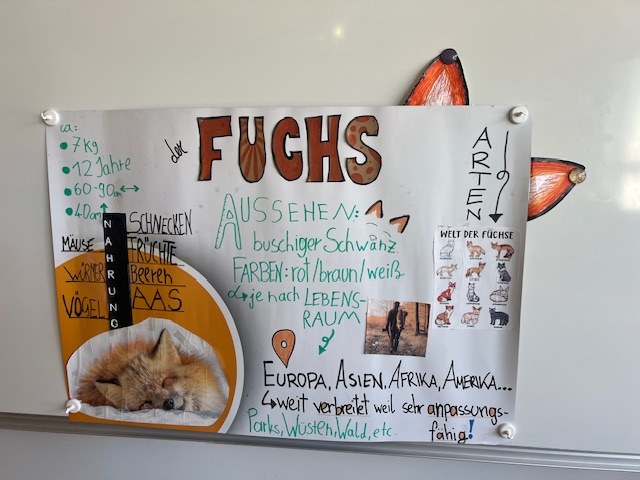 ca:
• 7kg
• 12 Jahre
• 60-90cm ↔
• 40cm ↑
der FUCHS
ARTEN
WELT DER FÜCHSE
AUSSEHEN:
buschiger Schwanz
FARBEN: rot/braun/weiß
↳ je nach LEBENS-
RAUM
NAHRUNG
SCHNECKEN
MÄUSE
FRÜCHTE
WÜRMER
Beeren
VÖGEL
AAS
EUROPA, ASIEN, AFRIKA, AMERIKA...
↳ weit verbreitet weil sehr anpassungs-
fähig!
Parks, Wüsten, Wald, etc.